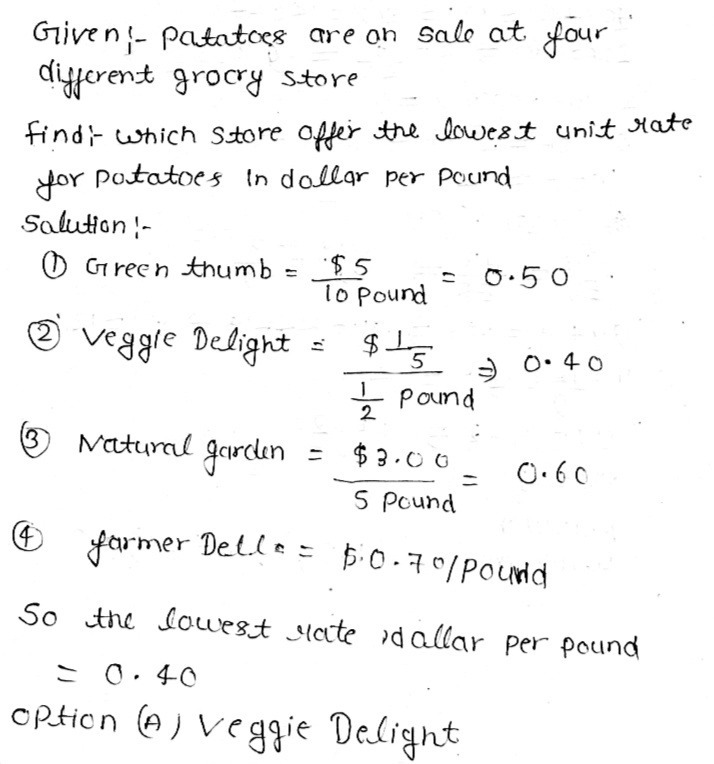 Given :- patatoes are on sale at four
different grocry store
find :- which store offer the lowest unit rate
for potatoes in dollar per pound
Salution :-
① Green thumb = $5 / 10 pound = 0.50
② Veggie Delight = $ 1/5 / 1/2 pound ⇒ 0.40
③ Natural garden = $3.00 / 5 pound = 0.60
④ farmer = $0.70/pound
So the lowest rate dallar per pound
= 0.40
option (A) Veggie Delight